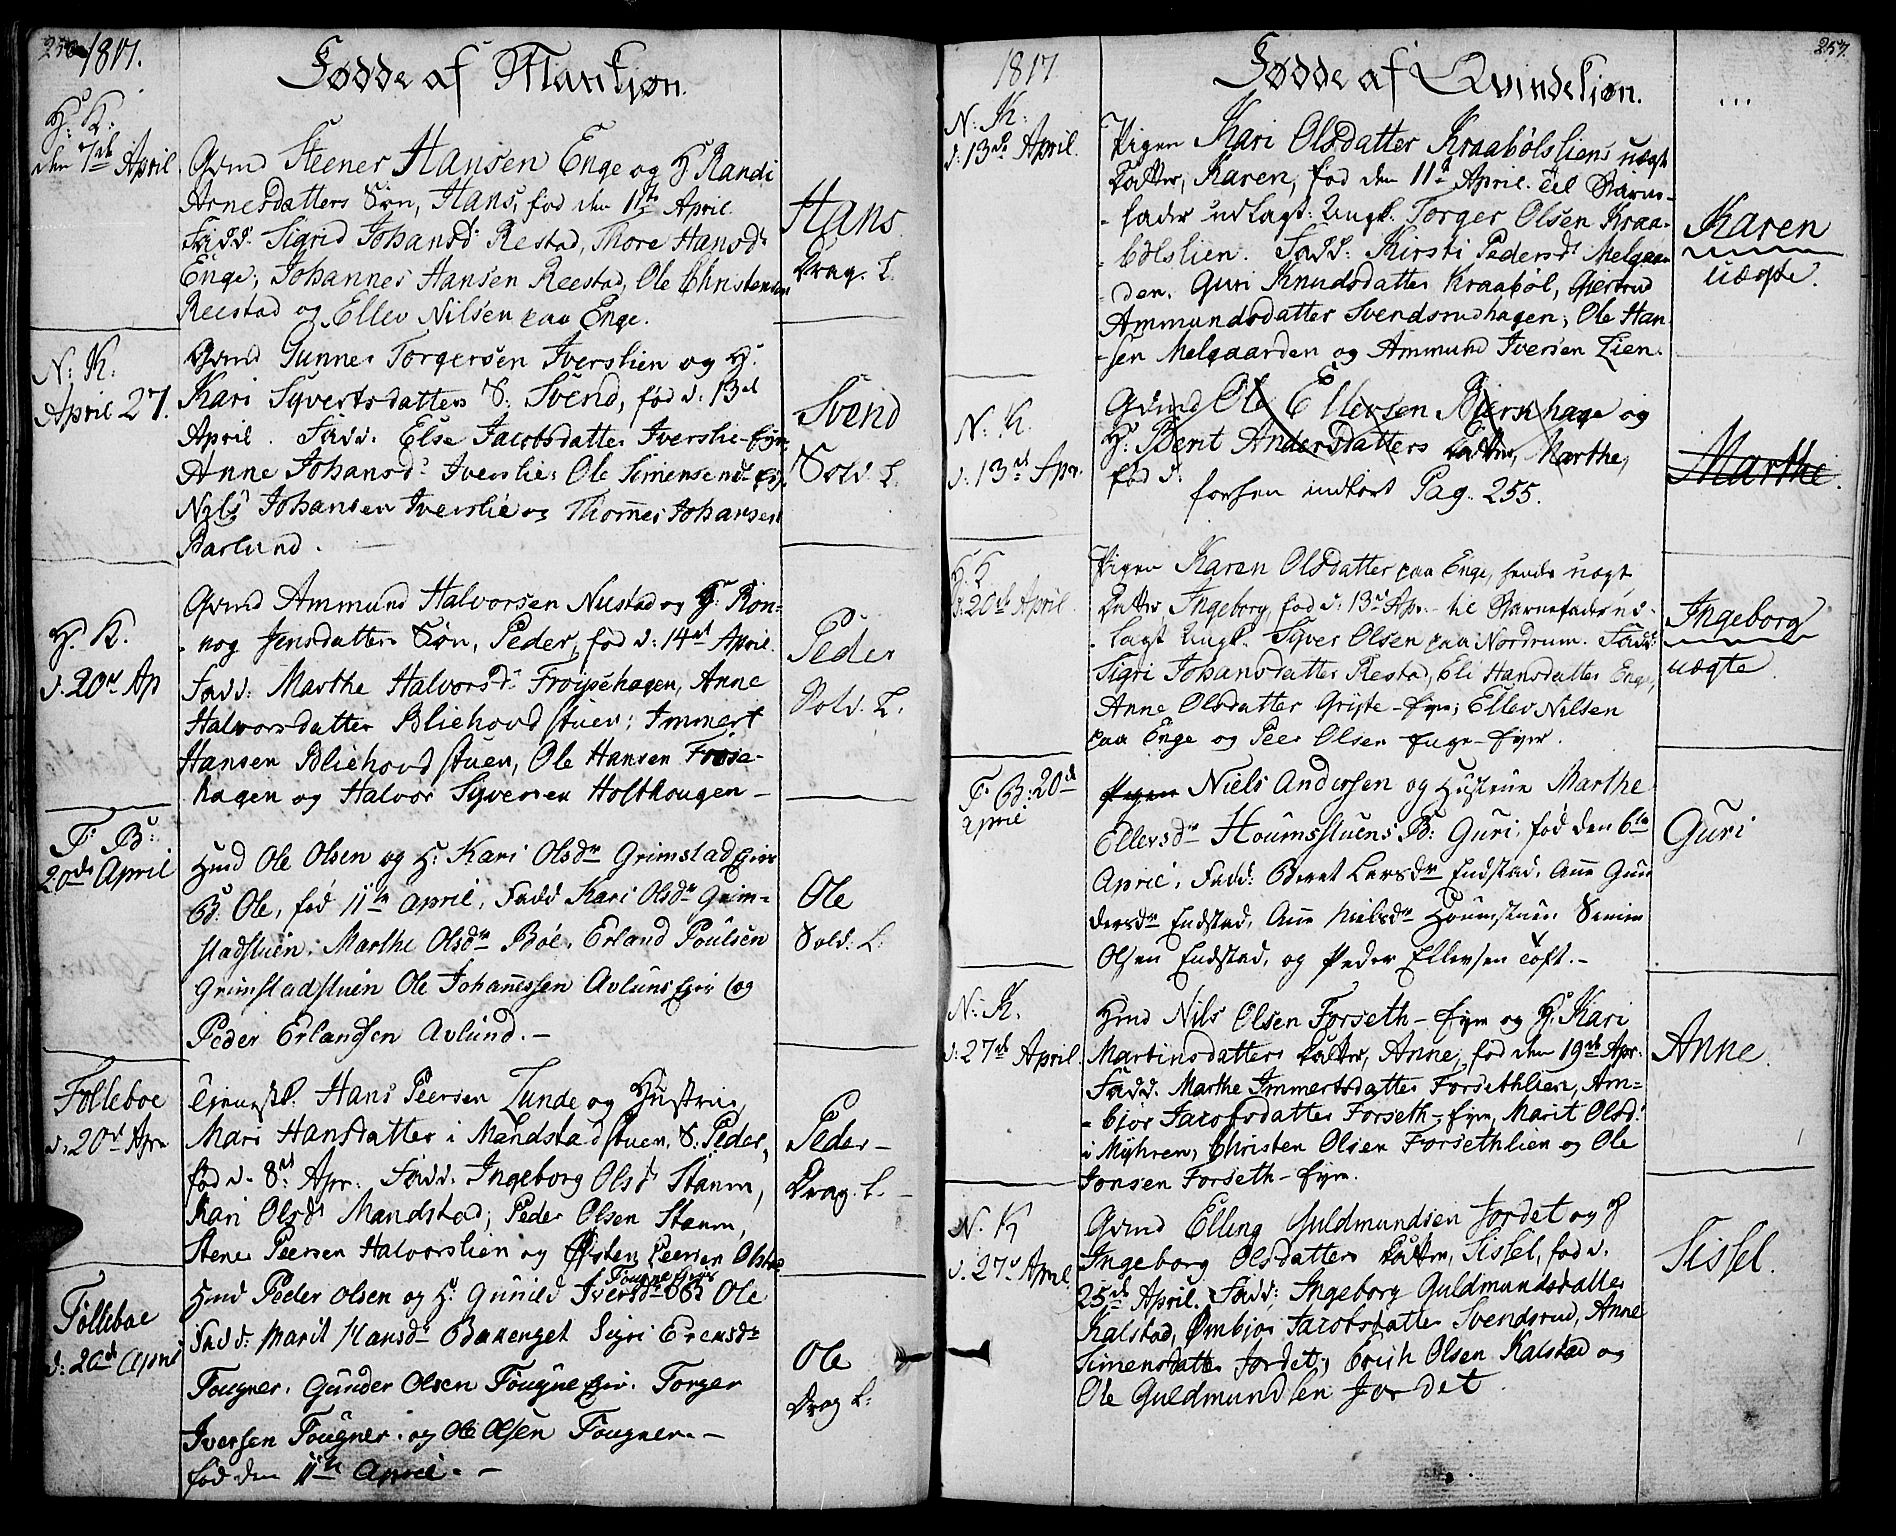 256
1817.
Fødde af Mankjøn.
H: K:
den 7de April
Gvmd Steener Hansen Enge og H: Randi
Arnesdatters Søn, Hans, fød den 1te April.
Fadd: Sigrid Johansd: Restad, Thore Hansd:
Enge; Johannes Hansen Reestad, Ole Christensen
Reestad og Ellev Nilsen paa Enge.
Hans
Drag. L.
N: K:
April 27.
Gvmd Gunner Torgersen Iverslien og H:
Kari Syvertsdatters S: Svend, fød d: 13de
April. Fadd: Else Jacobsdatter Iverslie-Eyer
Anne Johansd: Iverslie; Ole Simensen
Nils Johansen Iverslie og Thomes Johansen
Barlund.
Svend
Sold. L.
H. K.
d. 20de Ap
Gvmd Ammund Halvorsen Nustad og H: Ron-
-nog Jensdatters Søn, Peder, fød d: 14de April.
Fadd: Marthe Halvorsd: Frøysehagen, Anne
Halvorsdatter Bliehovdstuen; Immert
Hansen Bliehovdstuen, Ole Hansen Frøise-
hagen og Halvor Syversen Holthougen -
Peder
Sold. L.
F: B:
20de April
Huusmd Ole Olsen og H: Kari Olsdr Grimstad Eier
B: Ole, fød 11te April, Fadd Kari Olsdr Grim-
stadstuen, Marthe Olsdr Bøe, Erland Poulsen
Grimstadstuen Ole Johannessen Avlunseier og
Peder Erlandsen Avlund. -
Ole
Sold: L:
Følleboe
d: 20de Apr
Tienestk. Hans Peersen Lunde og Hustrue
Mari Hansdatter i Mandstadstuen, S. Peder,
fød d. 8de Apr. Fadd. Ingeborg Olsd: Stamm,
Kari Olsdr Mandstad; Peder Olsen Stamm,
Stener Peersen Halvorslien og Østen Peersen Olstad
Peder -
Drag. L. -
Følleboe
d: 20de April
Fougner Eier
Hmd Peder Olsen og H: Gunild Iversdr B: Ole
Fadd: Marit Hansdr Bakenget Sigri Erensdr
Fougner. Gunder Olsen Fougne Eier. Torger
Iversen Fougner. og Ole Olsen Fougner. -
fød den 11te April. -
Ole
Drag L:
257.
1817
Fødde af Qvindekjøn.
...
N: K:
d: 13de April.
Pigen Kari Olsdatter Kraabølsliens uægte
Datter, Karen, fød den 11te April. Til Barne-
-fader udlagt: Ungk. Torger Olsen Kraa-
-bølslien. Fadd: Kirsti Pedersd: Melgaar-
-den. Guri Knudsdatter Kraabøl, Giertrud
Ammundsdatter Svendsrudhagen; Ole Han-
-sen Melgaarden og Ammund Iversen Lien.
Karen
uægte.
N: K.
d: 13de Apr.
Gvmd Ole Ellevsen Biernhage og
H: Berit Andersdatters Datter, Marthe,
fød d:
forhen indført Pag. 255.
Marthe.
H: K
d: 20de April.
Pigen Karen Olsdatter paa Enge, hendes uægte
Datter Ingeborg, fød d: 13de Apr. til Barnefader ud-
-lagt Ungk. Syver Olsen paa Nordrum. Fadd:
Sigri Johansdatter Restad, Eli Hansdatter Enge,
Anne Olsdatter Griste-Eyer; Ellev Nilsen
paa Enge og Peer Olsen Enge-Eyer.
Ingeborg
uægte
F: B: 20de
April
Pigen Niels Andersen og Hustrue Marthe
Ellevsdr Houmsstuens B: Guri, fød den 6te
April. Fadd: Beret Larsdr Endstad, Ane Gun
dersdr Endstad, Ane Nielsdr Houmstuen Simen
Olsen Endstad, og Peder Ellevsen Toft. -
Guri
N: K.
d: 27de April.
Hmd Nils Olsen Forseth-Eyer og H: Kari
Martinsdatters Datter, Anne, fød den 19de Apr.
Fadd. Marthe Immertsdatter Forsethlien, Am-
-bjør Jacobsdatter Forseth-Eyer, Marit Olsd:
i Myhren, Christen Olsen Forsethlien og Ole
Jonsen Forseth-Eyer.
Anne.
N. K
d. 27de April.
Gvmd Elling Guldmundsen Jordet og H
Ingeborg Olsdatters Datter, Sissel, fød d.
25de April. Fadd: Ingeborg Guldmundsdatter
Kalstad, Ømbjør Jacobsdatter Svendsrud, Anne
Simensdatter Jordet; Erich Olsen Kalstad og
Ole Guldmundsen Jordet.
Sissel.